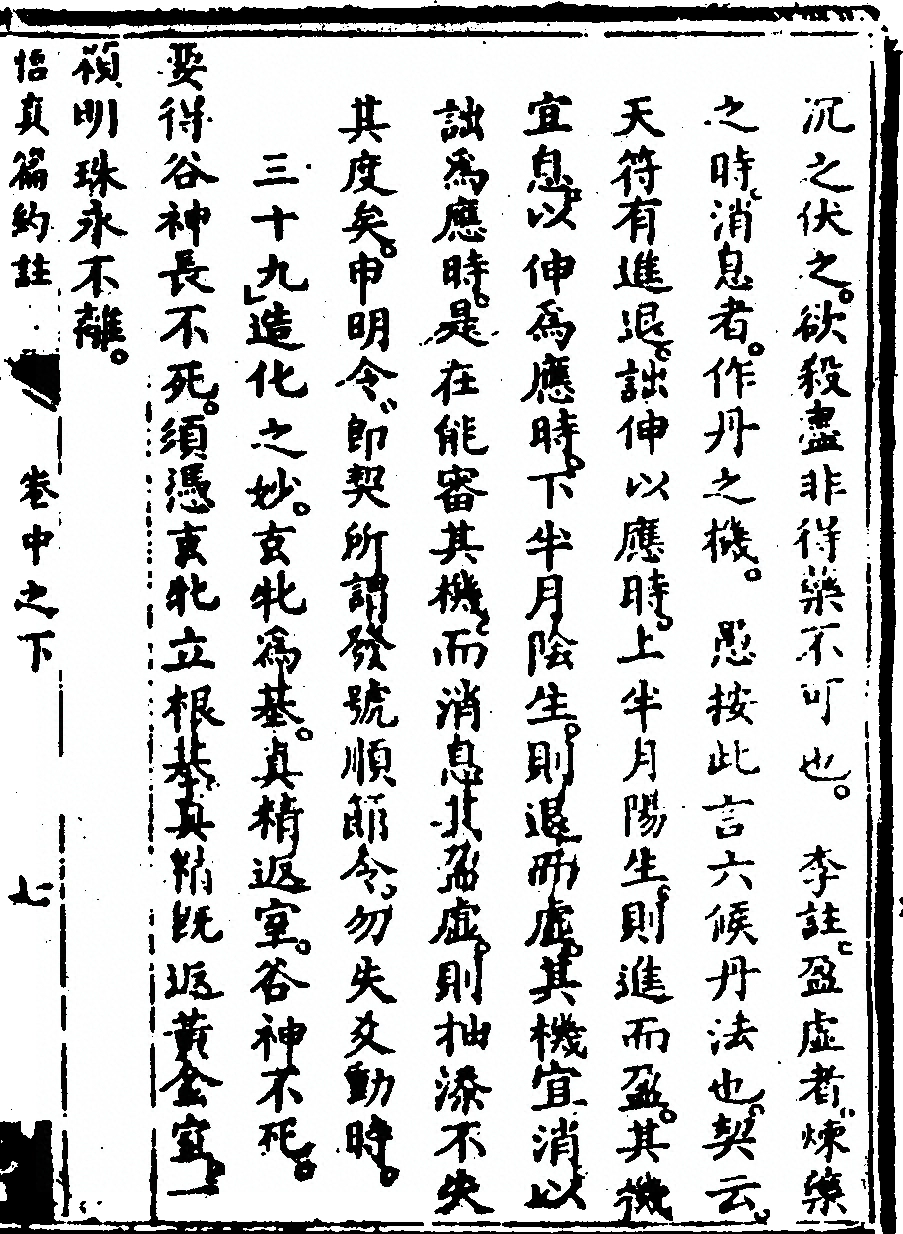 沉之伏之。欲殺盡非得藥不可也。　李註、盈虛者、煉藥
之時、消息者。作丹之機。　愚按此言六候丹法也、契云、
天符有進退、詘伸以應時、上半月陽生、則進而盈。其機
宜息、以伸爲應時。下半月陰生。則退而虛。其機宜消以
詘爲應時。是在能審其機、而消息其盈虛。則抽添不失
其度矣。申明令、即契所謂發號順節令、勿失爻動時。
三十九造化之妙。玄牝爲基。眞精返室。谷神不死。
要得谷神長不死。須憑玄牝立根基、眞精既返黃金室、一
顆明珠永不離。
悟眞篇約註　卷中之下　七